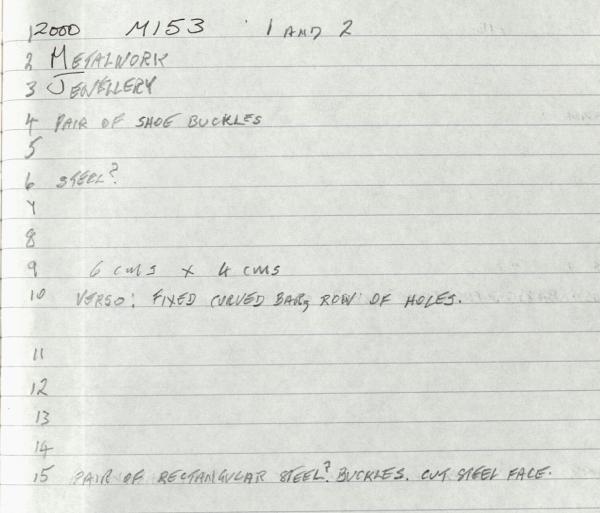 1 2000 M153 . 1 AND 2
2 METALWORK
3 JEWELLERY
4 PAIR OF SHOE BUCKLES
5
6 STEEL?
7
8
9 6 cms x 4 cms
10 VERSO: FIXED CURVED BAR, ROW OF HOLES.
11
12
13
14
15 PAIR OF RECTANGULAR STEEL? BUCKLES. CUT STEEL FACE.